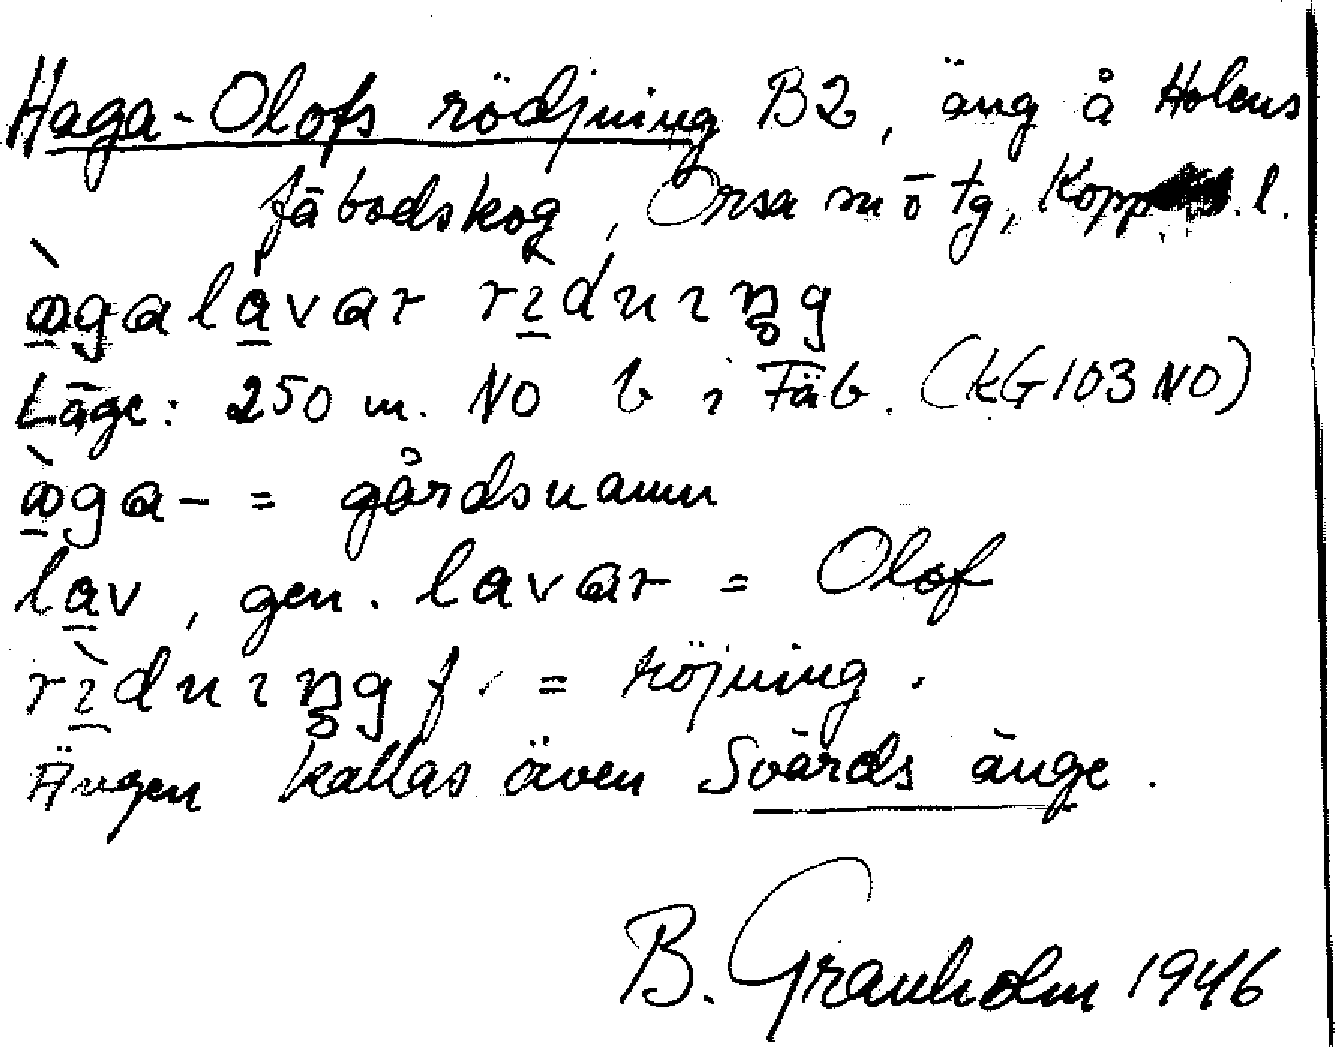 Haga-Olofs rödjning B2, äng å Holens
fäbodskog, Orsa m ö tg, Kopp l.
ɷ̀galàvar rìdnɪŋg
Läge: 250 m. NO b i Fäb. (kG103NO)
ɷ̀ga- = gårdsnamn
lav, gen. lavar = Olof
rìdnɪŋg f. = röjning.
Ängen kallas även Svärds änge.
B. Granholm 1946